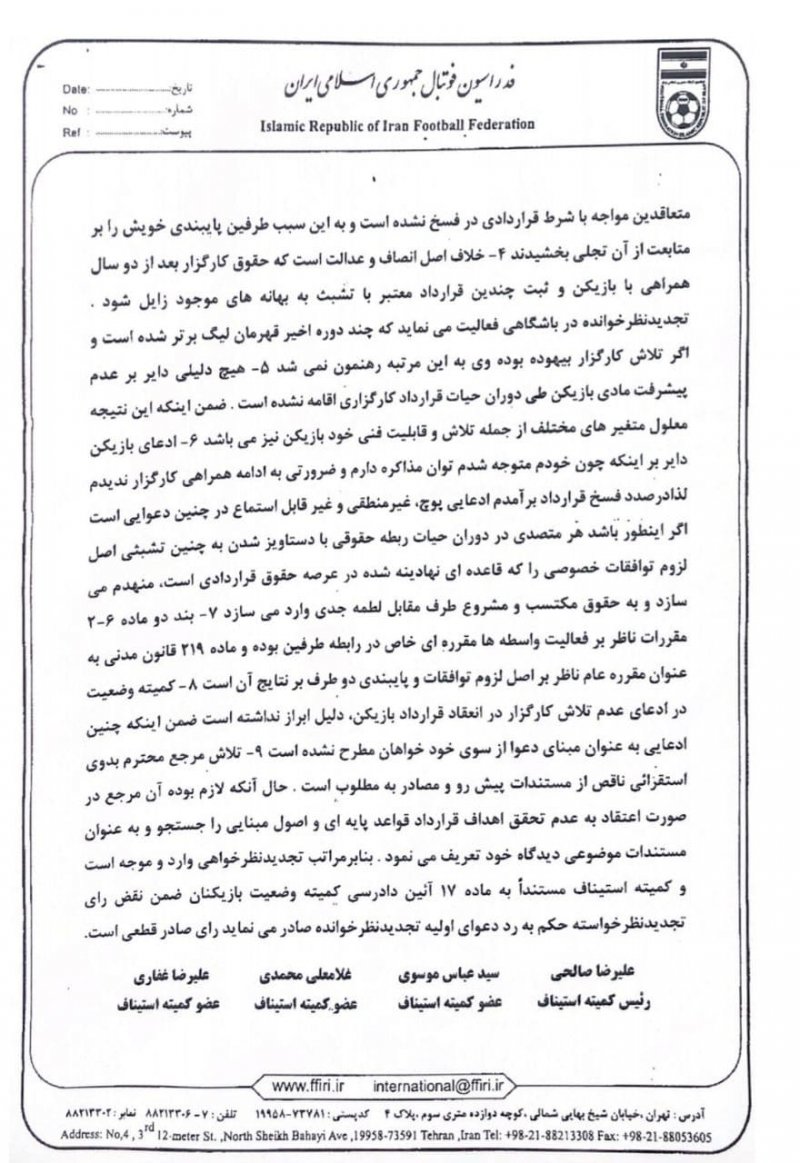 فدراسیون فوتبال جمهوری اسلامی ایران
Islamic Republic of Iran Football Federation
Date: تاریخ:
No : شماره:
Ref : پیوست:
متعاقدین مواجه با شرط قراردادی در فسخ نشده است و به این سبب طرفین پایبندی خویش را بر
متابعت از آن تجلی بخشیدند ۴- خلاف اصل انصاف و عدالت است که حقوق کارگزار بعد از دو سال
همراهی با بازیکن و ثبت چندین قرارداد معتبر با تشبث به بهانه های موجود زایل شود .
تجدیدنظرخوانده در باشگاهی فعالیت می نماید که چند دوره اخیر قهرمان لیگ برتر شده است و
اگر تلاش کارگزار بیهوده بوده وی به این مرتبه رهنمون نمی شد ۵- هیچ دلیلی دایر بر عدم
پیشرفت مادی بازیکن طی دوران حیات قرارداد کارگزاری اقامه نشده است . ضمن اینکه این نتیجه
معلول متغیر های مختلف از جمله تلاش و قابلیت فنی خود بازیکن نیز می باشد ۶- ادعای بازیکن
دایر بر اینکه چون خودم متوجه شدم توان مذاکره دارم و ضرورتی به ادامه همراهی کارگزار ندیدم
لذادرصدد فسخ قرارداد برآمدم ادعایی پوچ، غیرمنطقی و غیر قابل استماع در چنین دعوایی است
اگر اینطور باشد هر متصدی در دوران حیات ربطه حقوقی با دستاویز شدن به چنین تشبثی اصل
لزوم توافقات خصوصی را که قاعده ای نهادینه شده در عرصه حقوق قراردادی است، منهدم می
سازد و به حقوق مکتسب و مشروع طرف مقابل لطمه جدی وارد می سازد ۷- بند دو ماده ۶-۲
مقررات ناظر بر فعالیت واسطه ها مقرره ای خاص در رابطه طرفین بوده و ماده ۲۱۹ قانون مدنی به
عنوان مقرره عام ناظر بر اصل لزوم توافقات و پایبندی دو طرف بر نتایج آن است ۸- کمیته وضعیت
در ادعای عدم تلاش کارگزار در انعقاد قرارداد بازیکن، دلیل ابراز نداشته است ضمن اینکه چنین
ادعایی به عنوان مبنای دعوا از سوی خود خواهان مطرح نشده است ۹- تلاش مرجع محترم بدوی
استقرائی ناقص از مستندات پیش رو و مصادر به مطلوب است . حال آنکه لازم بوده آن مرجع در
صورت اعتقاد به عدم تحقق اهداف قرارداد قواعد پایه ای و اصول مبنایی را جستجو و به عنوان
مستندات موضوعی دیدگاه خود تعریف می نمود . بنابرمراتب تجدیدنظرخواهی وارد و موجه است
و کمیته استیناف مستنداً به ماده ۱۷ آئین دادرسی کمیته وضعیت بازیکنان ضمن نقض رای
تجدیدنظرخواسته حکم به رد دعوای اولیه تجدیدنظرخوانده صادر می نماید رای صادر قطعی است.
علیرضا صالحی سید عباس موسوی غلامعلی محمدی علیرضا غفاری
رئیس کمیته استیناف عضو کمیته استیناف عضو کمیته استیناف عضو کمیته استیناف
www.ffiri.ir international@ffiri.ir
آدرس : تهران ،خیابان شیخ بهایی شمالی ،کوچه دوازده متری سوم ،پلاک ۴ کدپستی : ۷۳۷۸۱-۱۹۹۵۸ تلفن : ۷ - ۸۸۲۱۳۳۰۶ نمابر : ۸۸۲۱۳۳۰۲
Address: No,4 , 3rd 12-meter St. ,North Sheikh Bahayi Ave ,19958-73591 Tehran ,Iran Tel: +98-21-88213308 Fax: +98-21-88053605